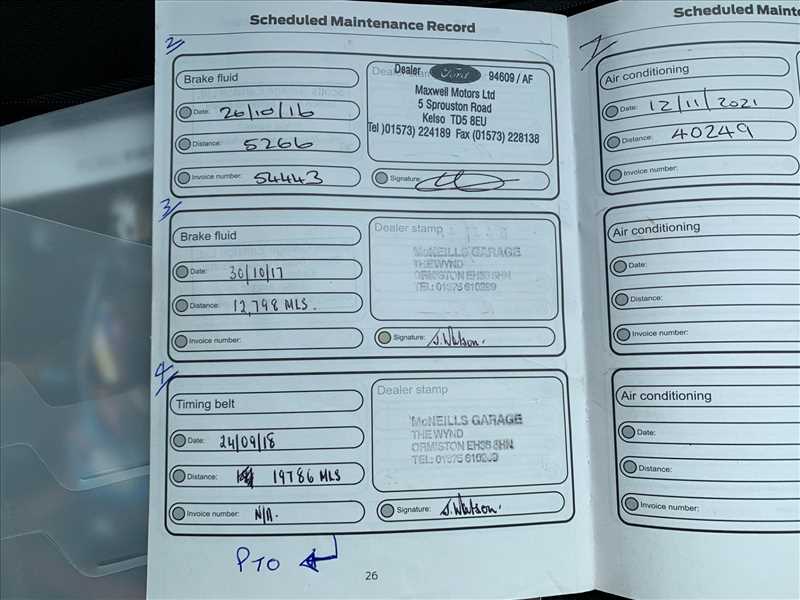 Scheduled Maintenance Record
2
Brake fluid
Date: 26/10/16
Distance: 5266
Invoice number: 54443
Dealer Ford 94609 / AF
Maxwell Motors Ltd
5 Sprouston Road
Kelso TD5 8EU
Tel )01573) 224189 Fax (01573) 228138
Signature:
3
Brake fluid
Date: 30/10/17
Distance: 12,798 MLS.
Invoice number:
Dealer stamp
McNEILLS GARAGE
THE WYND
ORMISTON EH35 5HN
TEL: 01875 610299
Signature: S. Watson.
4
Timing belt
Date: 24/09/18
Distance: 19786 MLS
Invoice number: N/A.
Dealer stamp
McNEILLS GARAGE
THE WYND
ORMISTON EH35 5HN
TEL: 01875
Signature: S. Watson.
PTO
26
Scheduled Maint
7
Air conditioning
Date: 12/11/2021
Distance: 40249
Invoice number:
Air conditioning
Date:
Distance:
Invoice number:
Air conditioning
Date:
Distance:
Invoice number: